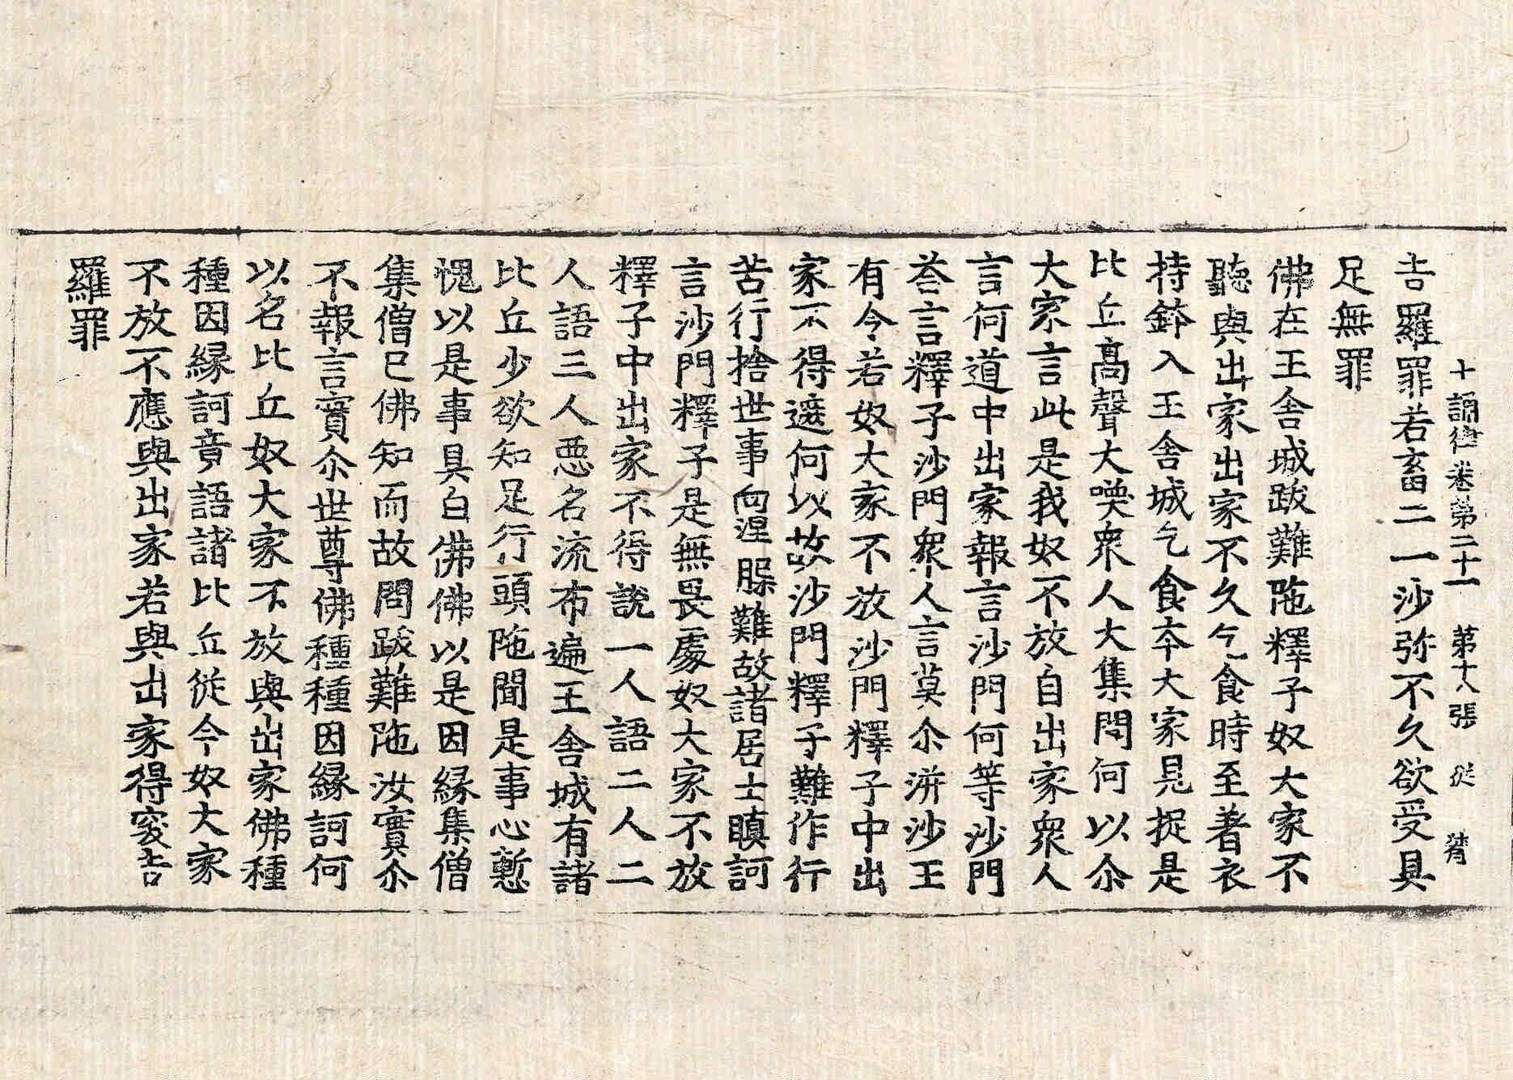 十誦律卷第二十一 第十八張 従
𠮷羅罪若畜二一沙弥不久欲受具
足無罪
佛在王舍城跋難陁釋子奴大家不
聽與出家出家不久乞食時至著衣
持鉢入王舍城乞食夲大家見捉是
比丘髙聲大喚衆人大集問何以尒
大家言此是我奴不放自出家衆人
言何道中出家報言沙門何等沙門
荅言釋子沙門衆人言莫尒洴沙王
有令若奴大家不放沙門釋子中出
家不得遮何以故沙門釋子難作行
苦行捨世事向涅難故諸居士瞋訶
言沙門釋子是無畏處奴大家不放
釋子中出家不得說一人語二人二
人語三人惡名流布遍王舍城有諸
比丘少欲知足行頭陁聞是事心慙
愧以是事具白佛佛以是因緣集僧
集僧已佛知而故問跋難陁汝實尒
不報言實尒世尊佛種種因緣訶何
以名比丘奴大家不放與出家佛種
種因緣訶竟語諸比丘従今奴大家
不放不應與出家若與出家得突𠮷
羅罪